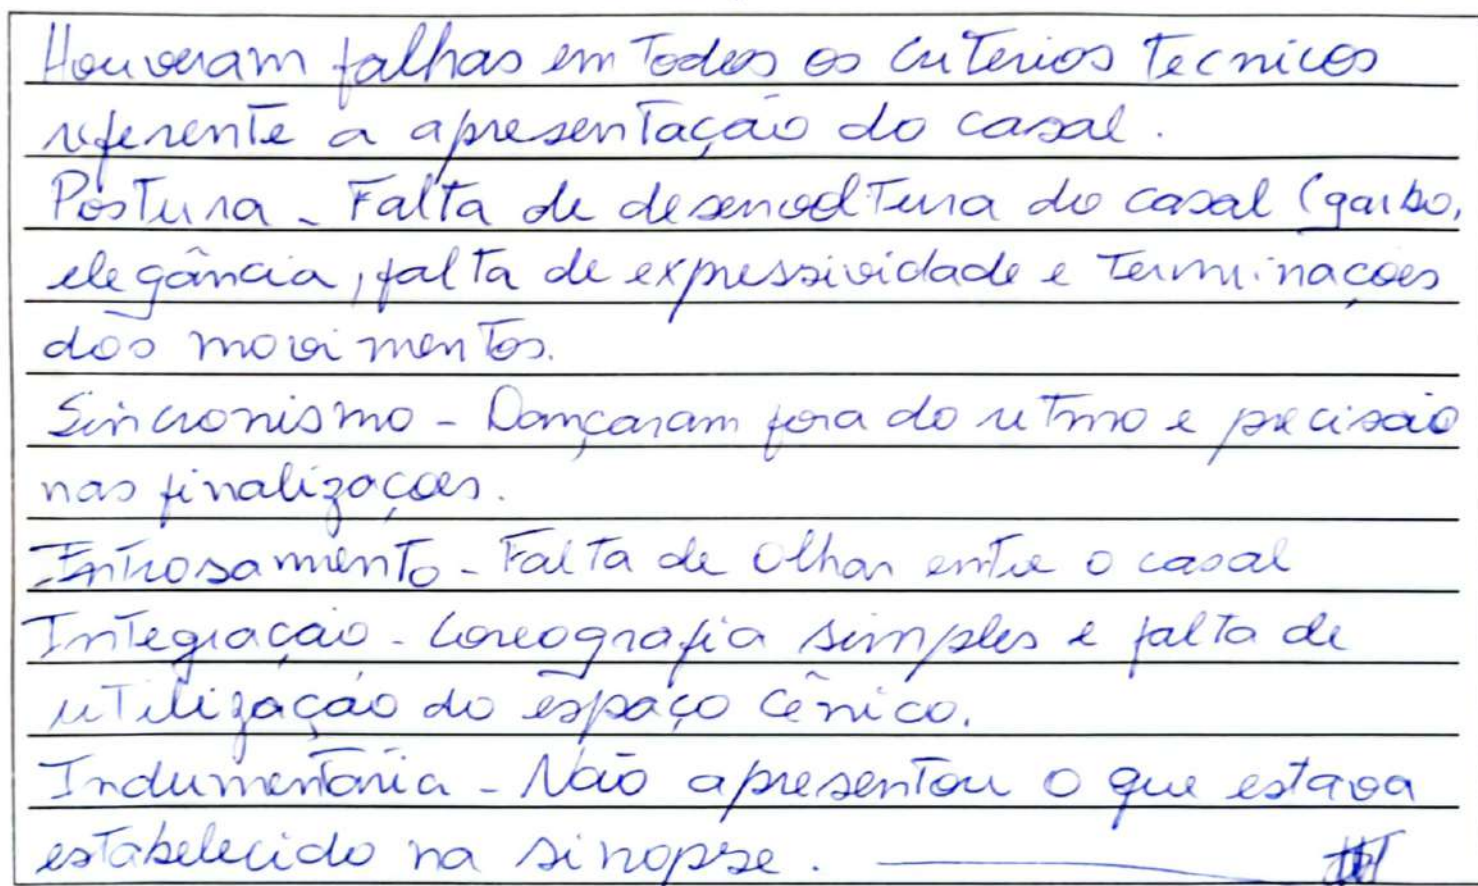 Houveram falhas em todos os criterios tecnicos
referente a apresentação do casal.
Postura - Falta de desenvoltura do casal (garbo,
elegância, falta de expressividade e terminações
dos movimentos.
Sincronismo - Dançaram fora do ritmo e precisão
nas finalizações.
Entrosamento - Falta de olhar entre o casal
Integração - Coreografia simples e falta de
utilização do espaço cênico.
Indumentária - Não apresentou o que estava
estabelecido na sinopse.